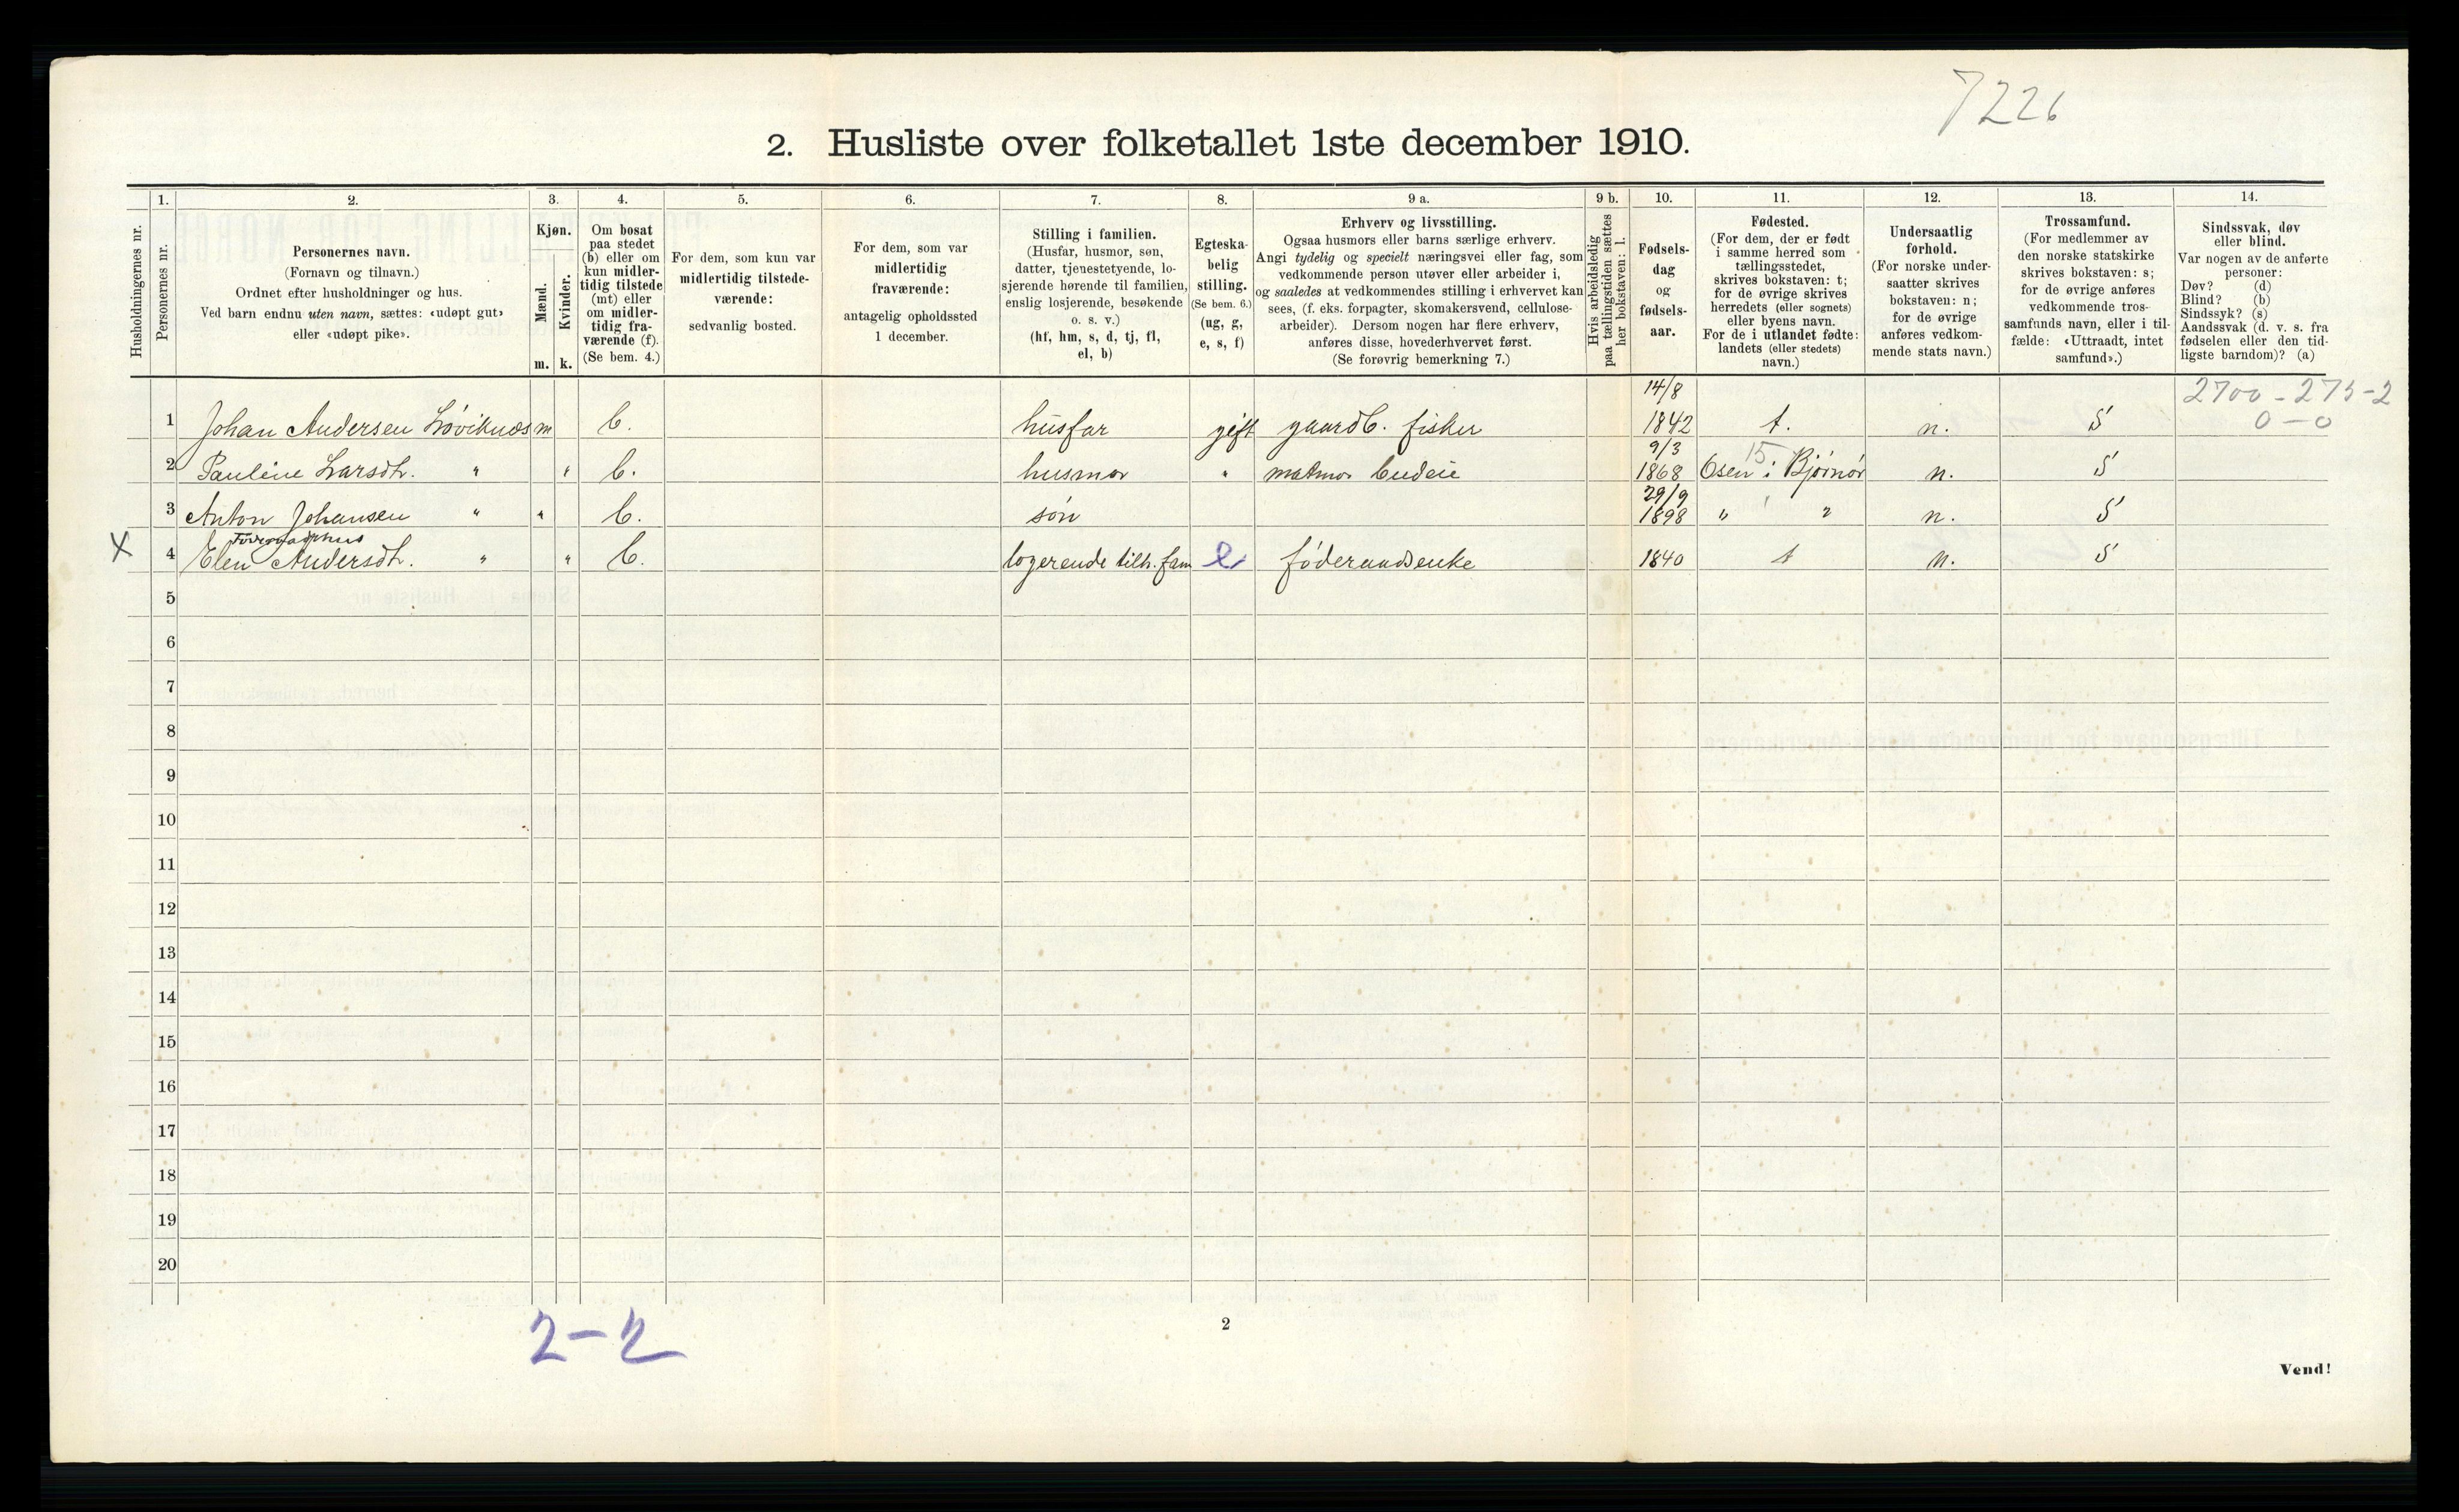 7226
2. Husliste over folketallet 1ste december 1910.
Husholdningernes nr.
1.
Personernes nr.
2.
Personernes navn.
(Fornavn og tilnavn.)
Ordnet efter husholdninger og hus.
Ved barn endnu uten navn, sættes: «udøpt gut»
eller «udøpt pike».
3.
Kjøn.
Mænd.
m.
Kvinder.
k.
4.
Om bosat
paa stedet
(b) eller om
kun midler-
tidig tilstede
(mt) eller
om midler-
tidig fra-
værende (f).
(Se bem. 4.)
5.
For dem, som kun var
midlertidig tilstede-
værende:
sedvanlig bosted.
6.
For dem, som var
midlertidig
fraværende:
antagelig opholdssted
1 december.
7.
Stilling i familien.
(Husfar, husmor, søn,
datter, tjenestetyende, lo-
sjerende hørende til familien,
enslig losjerende, besøkende
o. s. v.)
(hf, hm, s, d, tj, fl,
el, b)
8.
Egteska-
belig
stilling.
(Se bem. 6.)
(ug, g,
e, s, f)
9 a.
Erhverv og livsstilling.
Ogsaa husmors eller barns særlige erhverv.
Angi tydelig og specielt næringsvei eller fag, som
vedkommende person utøver eller arbeider i,
og saaledes at vedkommendes stilling i erhvervet kan
sees, (f. eks. forpagter, skomakersvend, cellulose-
arbeider). Dersom nogen har flere erhverv,
anføres disse, hovederhvervet først.
(Se forøvrig bemerkning 7.)
9 b.
Hvis arbeidsledig
paa tællingstiden sættes
her bokstaven: l.
10.
Fødsels-
dag
og
fødsels-
aar.
11.
Fødested.
(For dem, der er født
i samme herred som
tællingsstedet,
skrives bokstaven: t;
for de øvrige skrives
herredets (eller sognets)
eller byens navn.
For de i utlandet fødte:
landets (eller stedets)
navn.)
12.
Undersaatlig
forhold.
(For norske under-
saatter skrives
bokstaven: n;
for de øvrige
anføres vedkom-
mende stats navn.)
13.
Trossamfund.
(For medlemmer av
den norske statskirke
skrives bokstaven: s;
for de øvrige anføres
vedkommende tros-
samfunds navn, eller i til-
fælde: «Uttraadt, intet
samfund».)
14.
Sindssvak, døv
eller blind.
Var nogen av de anførte
personer:
Døv? (d)
Blind? (b)
Sindssyk? (s)
Aandssvak (d. v. s. fra
fødselen eller den tid-
ligste barndom)? (a)
14/8 2700-275-2
1 Johan Andersen Løviknæs m b. husfar gift gaardb. fisker 1842 t. n. S 0-0
9/3 15
2 Pauline Larsdt. " " b. husmor " matmor budeie 1868 Osen i Bjørnør n. S
29/9
3 Anton Johansen " " b. søn 1898 " " n. S
X 4 Elen Andersdt. " " b. logerende tilh. fam e føderaadsenke 1840 t n. S
5
6
7
8
9
10
11
12
13
14
15
16
17
18
19
20
2-2
2
Vend!